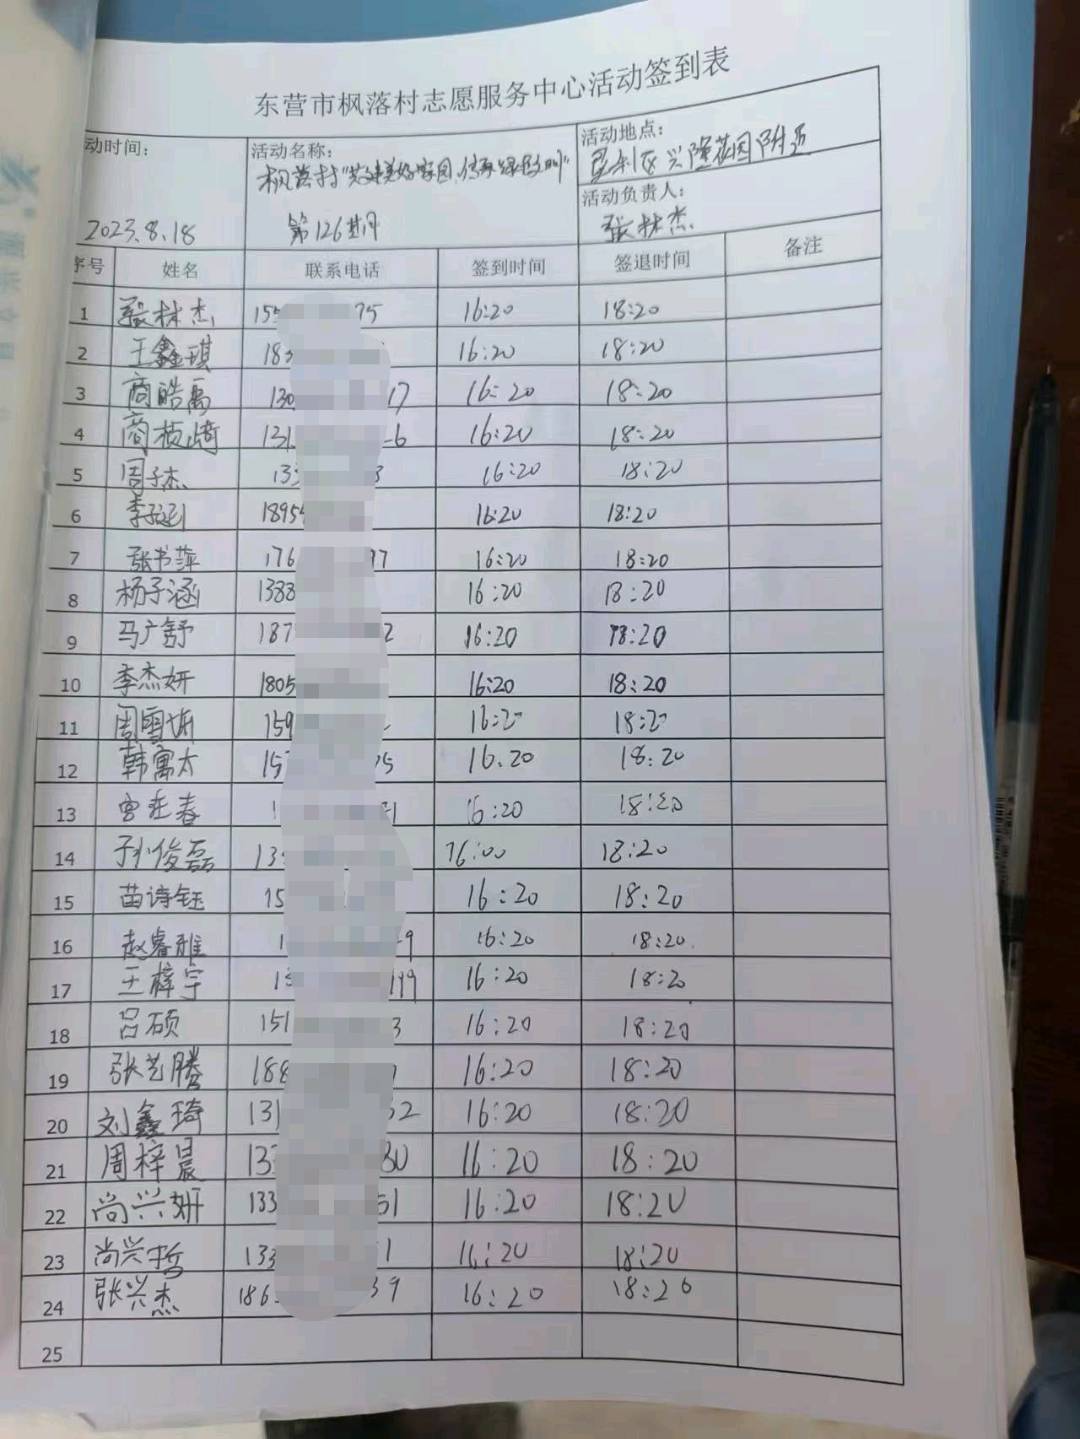 东营市枫落村志愿服务中心活动签到表
动时间: 2023.8.18
活动名称: 枫落村"共建美好家园,传承绿色文明" 第126期
活动地点: 垦利区兴隆花园附近
活动负责人: 张林杰
序号 姓名 联系电话 签到时间 签退时间 备注
1 张林杰 155 75 16:20 18:20
2 王鑫琪 183 16:20 18:20
3 商皓禹 130 17 16:20 18:20
4 商桢崎 131 6 16:20 18:20
5 周子杰 133 3 16:20 18:20
6 李涵 1895 16:20 18:20
7 张书萍 176 97 16:20 18:20
8 杨子涵 1388 16:20 18:20
9 马广舒 187 2 16:20 18:20
10 李杰妍 1805 16:20 18:20
11 周雪 159 16:2 18:2
12 韩寓太 157 75 16:20 18:20
13 宫在春 1 1 16:20 18:20
14 孙俊磊 133 16:00 18:20
15 苗诗钰 15 16:20 18:20
16 赵睿雅 1 9 16:20 18:20.
17 王梓宇 13 199 16:20 18:20
18 吕硕 151 3 16:20 18:20
19 张艺腾 188 16:20 18:20
20 刘鑫琦 131 52 16:20 18:20
21 周梓晨 133 80 16:20 18:20
22 尚兴妍 133 51 16:20 18:20
23 尚兴哲 133 1 16:20 18:20
24 张兴杰 186 39 16:20 18:20
25